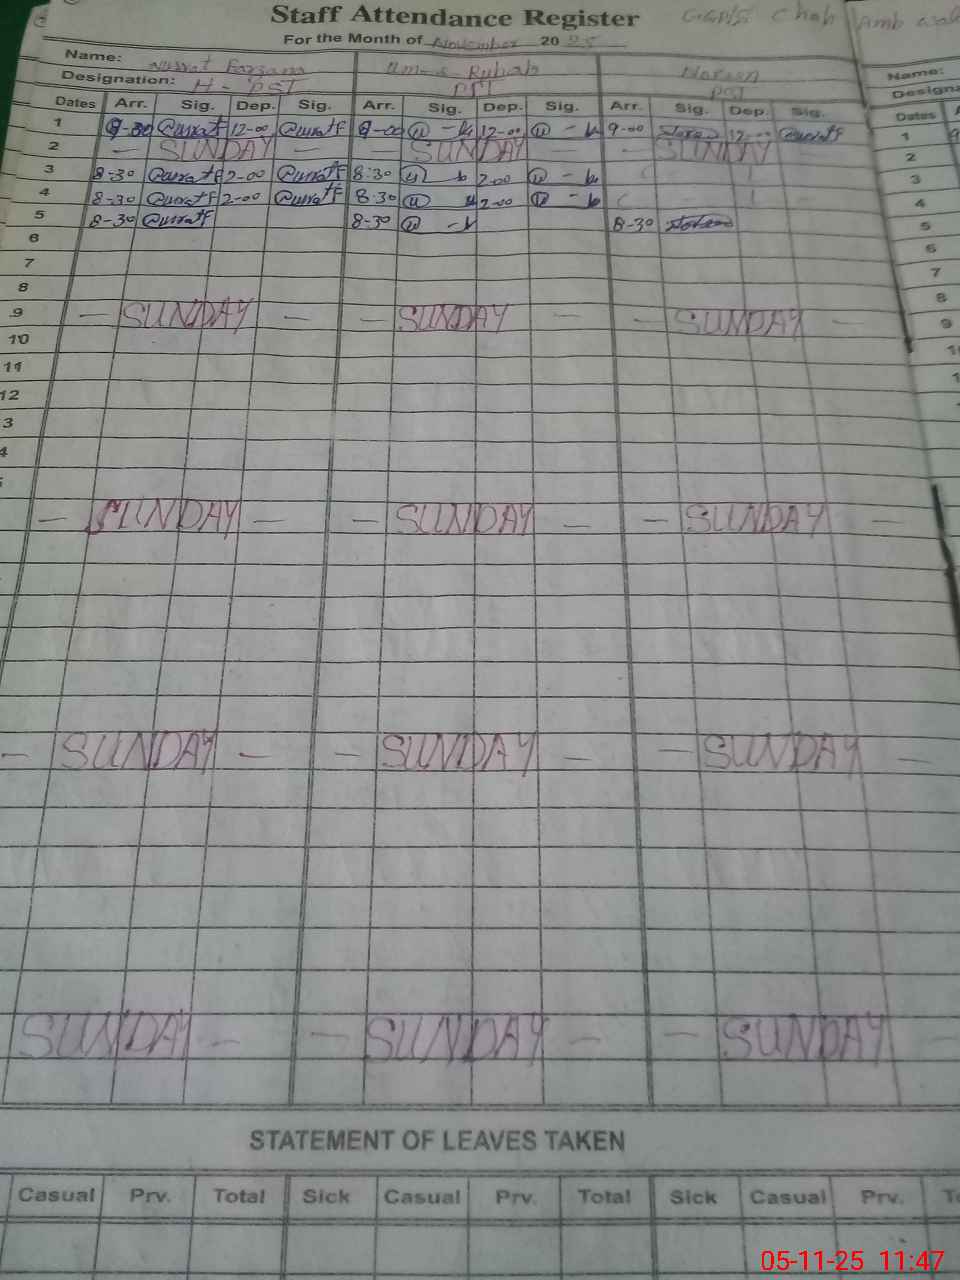 Staff Attendance Register
For the Month of November 2025
Name: Nusrat Farzana Um-e Rubab Name:
Designation: H-PST PST PST Design
Dates Arr. Sig. Dep. Sig. Arr. Sig. Dep. Sig. Arr. Sig. Dep. Sig. Dates
1 9-30 12-00 9-00 12-00 9-00 12-00 1
2 — SUNDAY — SUNDAY — SUNDAY — 2
3 8-30 2-00 8:30 2-00 3
4 8-30 2-00 8:30 2-00 4
5 8-30 8-30 8-30 5
6 6
7 7
8 8
9 — SUNDAY — — SUNDAY — — SUNDAY — 9
10
11
12
3
4
— SUNDAY — — SUNDAY — — SUNDAY —
— SUNDAY — — SUNDAY — — SUNDAY —
SUNDAY — — SUNDAY — — SUNDAY —
STATEMENT OF LEAVES TAKEN
Casual Prv. Total Sick Casual Prv. Total Sick Casual Prv.
05-11-25 11:47